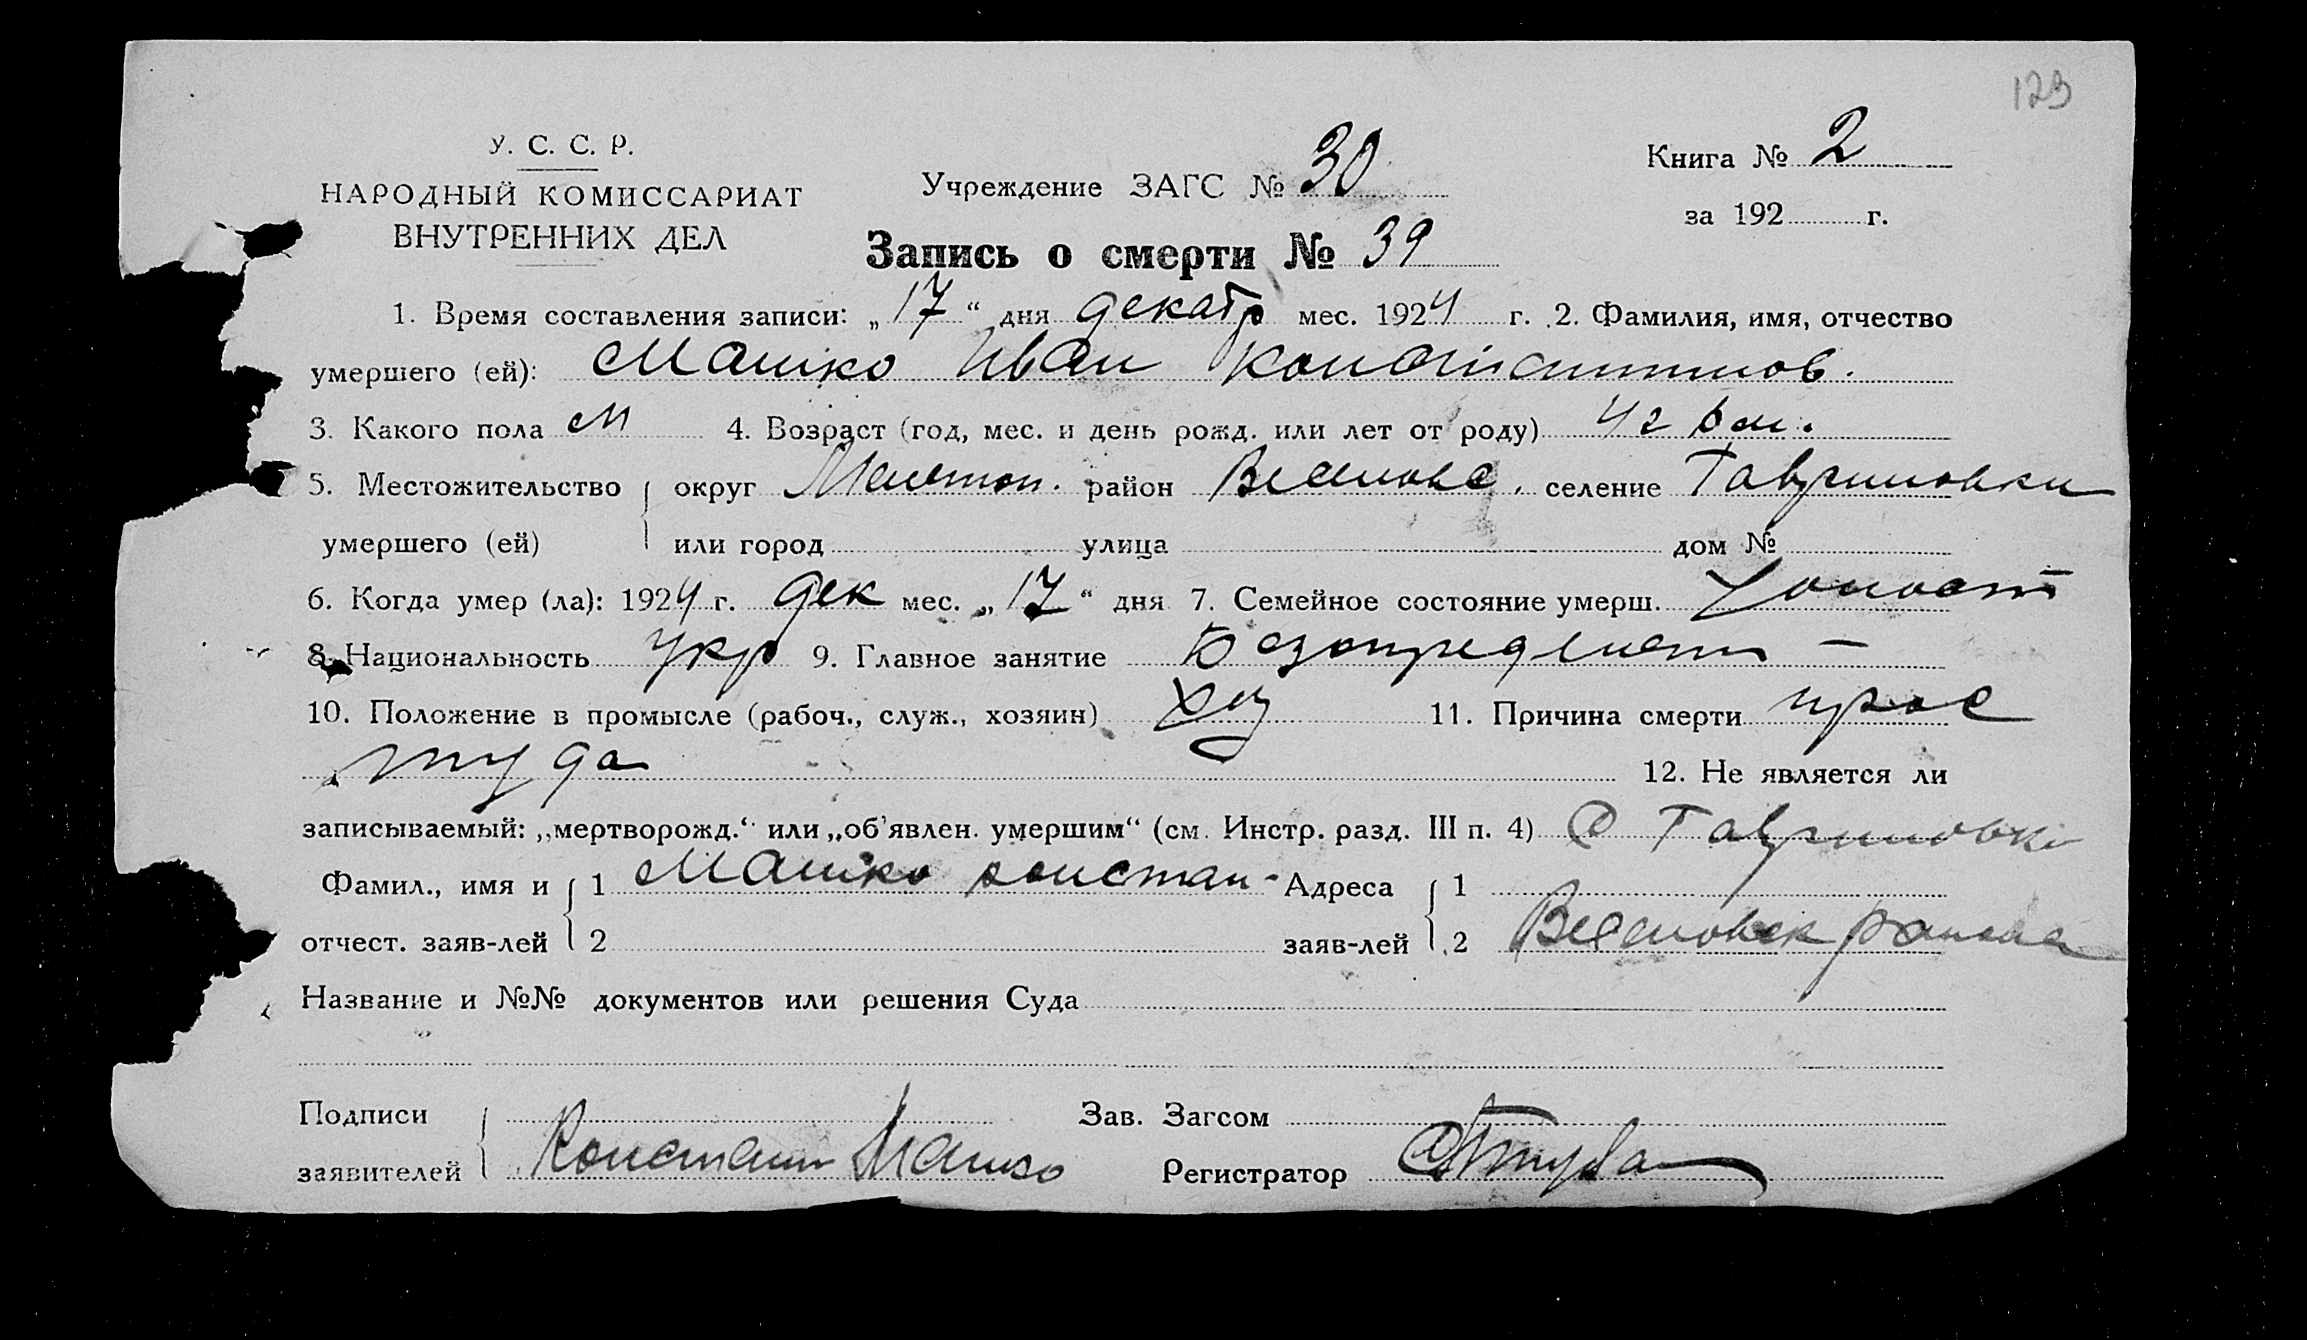 123
У. С. С. Р.
НАРОДНЫЙ КОМИССАРИАТ
ВНУТРЕННИХ ДЕЛ
Учреждение ЗАГС № 30
Книга № 2
за 192 г.
Запись о смерти № 39
1. Время составления записи: „17“ дня декабр мес. 1924 г. 2. Фамилия, имя, отчество
умершего (ей): Машко Иван Константинов.
3. Какого пола М 4. Возраст (год, мес. и день рожд. или лет от роду) 4 г 6 м.
5. Местожительство округ Мелетоп. район Веселовс. селение Гавриловки
умершего (ей) или город улица дом №
6. Когда умер (ла): 1924 г. дек мес. „17“ дня 7. Семейное состояние умерш. Холост
8. Национальность укр 9. Главное занятие
10. Положение в промысле (рабоч., служ., хозяин) хоз 11. Причина смерти прос
туда 12. Не является ли
записываемый: „мертворожд.“ или „об'явлен. умершим“ (см. Инстр. разд. III п. 4) С Гавриловки
Фамил., имя и 1 Машко Констан- Адреса 1
отчест. заяв-лей 2 заяв-лей 2 Веселовск района
Название и №№ документов или решения Суда
Подписи Зав. Загсом
заявителей Констант Машко Регистратор